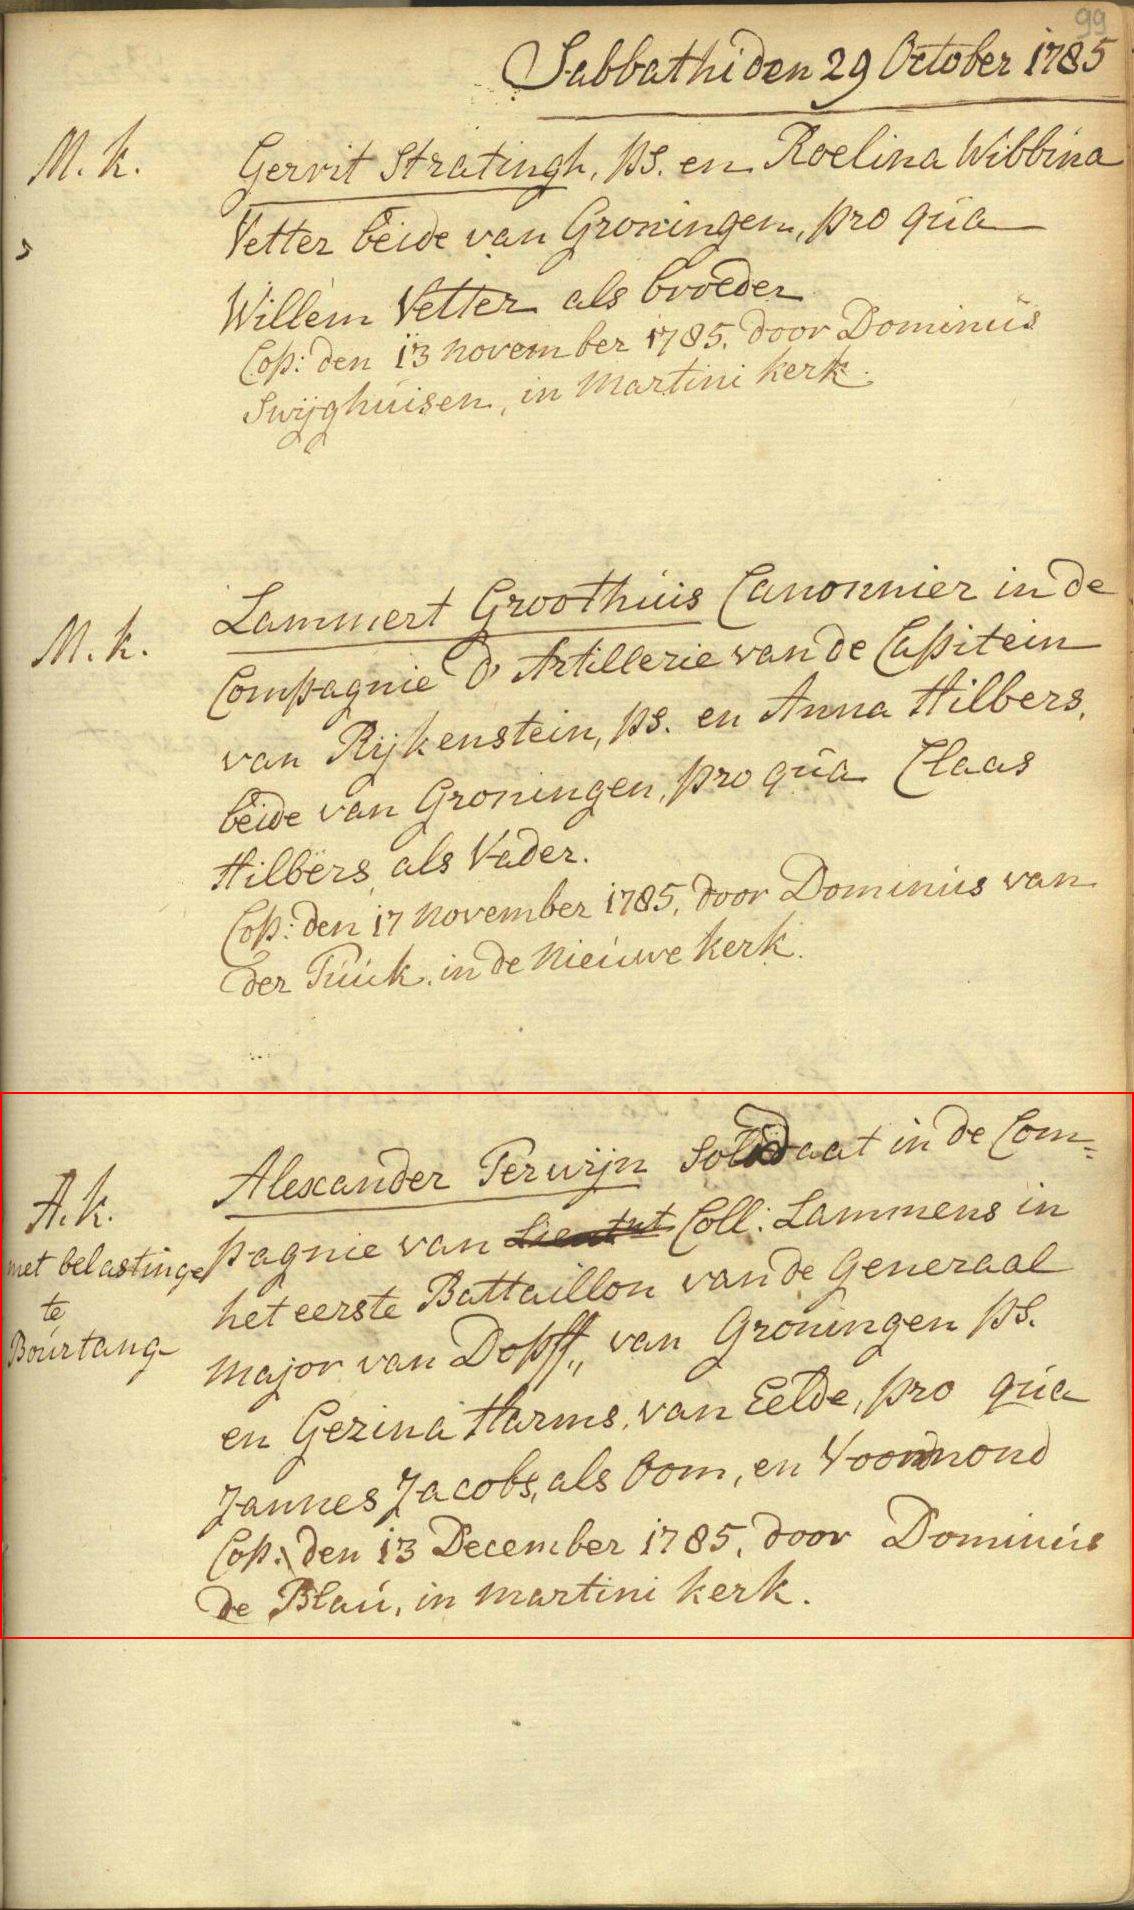 99
Sabbathi den 29 October 1785
M. k.
Gerrit Stratingh, ps. en Roelina Wibbina
Vetter beide van Groningen, pro qua
Willem Vetter als broeder
Cop: den 13 november 1785. door Dominus
Swijghuisen, in Martini kerk.
M. k.
Lammert Groothuis Canonnier in de
Compagnie d' Artillerie van de Capitein
van Rijkenstein, ps. en Anna Hilbers,
beide van Groningen, pro qua Claas
Hilbers, als Vader.
Cop: den 17 november 1785, door Dominus van
der Tuuk. in de Nieuwe kerk.
A. k.
met belastinge
te
Bourtang
Alexander Terwijn Soldaat in de Com=
pagnie van Lieutnt Coll: Lammens in
het eerste Battaillon van de Generaal
Major van Dopff,, van Groningen ps.
en Gezina Harms, van Eelde, pro qua
Jannes Jacobs, als Oom, en Voormond
Cop: den 13 December 1785, door Dominus
de Blau, in martini kerk.